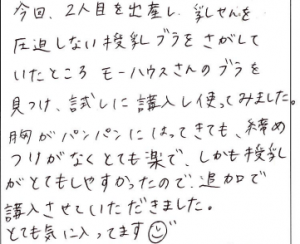 今回、2人目を出産し、乳せんを
圧迫しない授乳ブラをさがして
いたところ モーハウスさんのブラを
見つけ、試しに講入し使ってみました。
胸がパンパンにはってきても、締め
つけがなくとても楽で、しかも授乳
がとてもしやすかったので、追加で
講入させていただきました。
とても気に入ってます